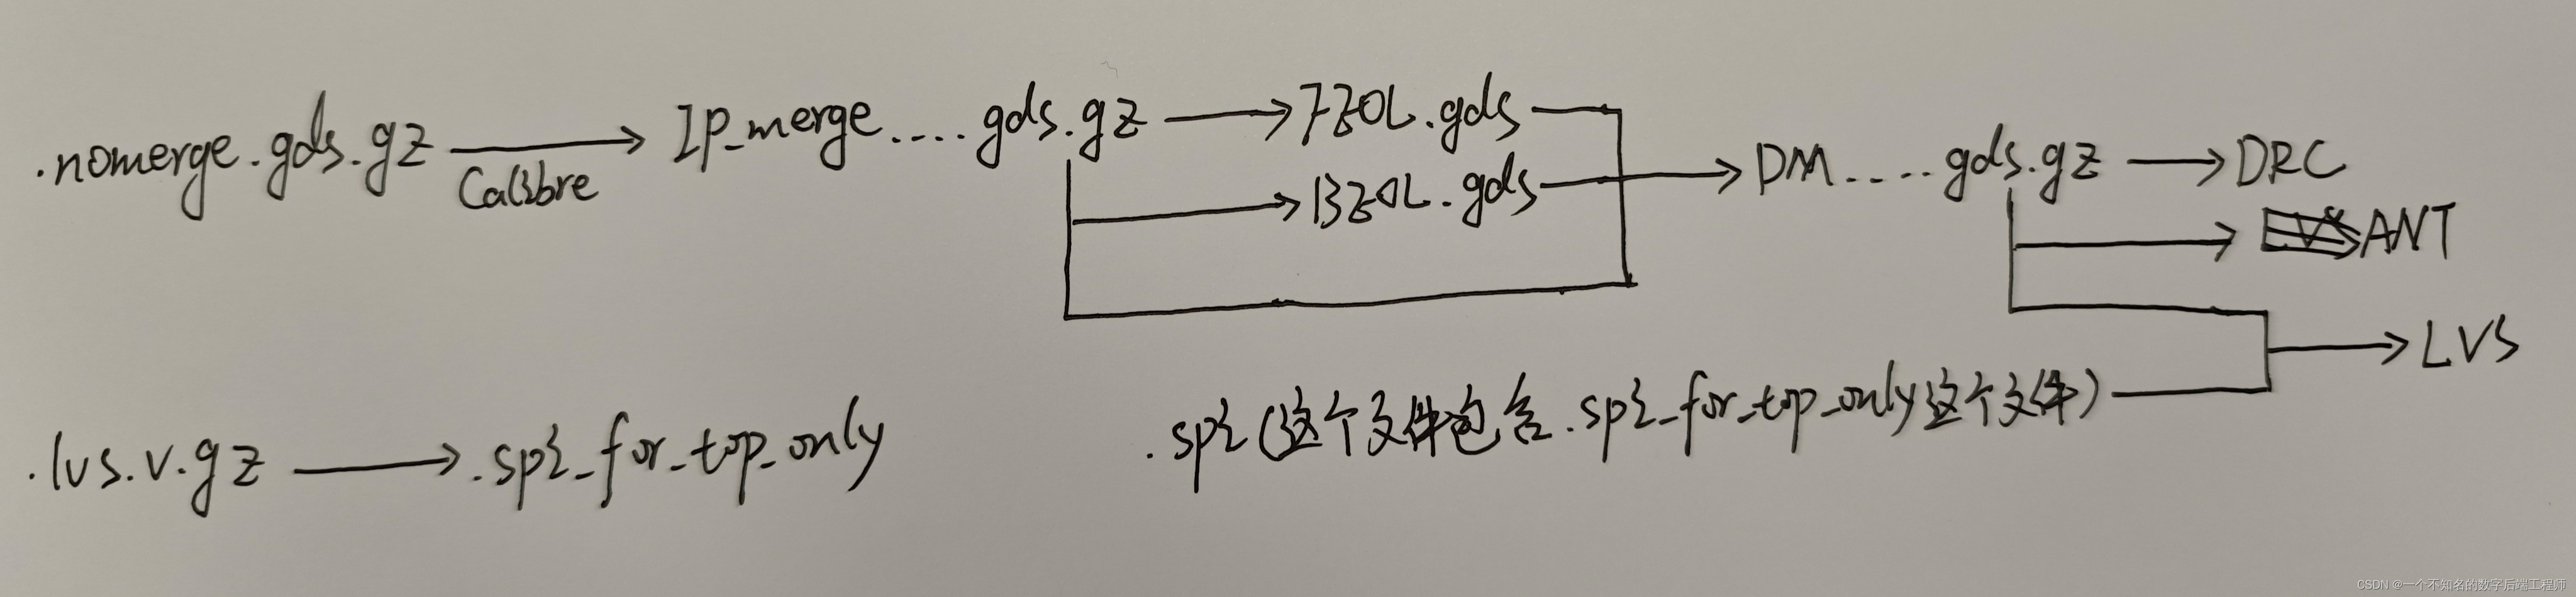 .nomerge.gds.gz Calibre IP_merge....gds.gz FEOL.gds DM....gds.gz DRC
BEOL.gds
ANT
LVS
.lvs.v.gz .spi_for_top_only .spi(这个文件包含.spi_for_top_only这个文件)
CSDN @一个不知名的数字后端工程师